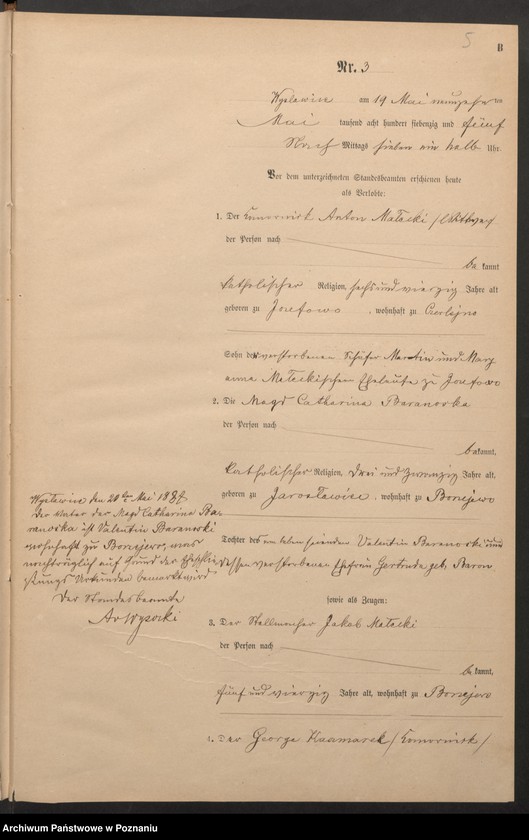 5
B
Nr. 3
am 19 Mai
Mai tausend acht hundert siebenzig und fünf
Nach Mittags sieben ein halb Uhr.
Vor dem unterzeichneten Standesbeamten erschienen heute
als Verlobte:
1. Der Komornick Anton Matecki /
der Person nach
be kannt
katholischer Religion, sechs und vierzig Jahre alt
geboren zu Josefowo, wohnhaft zu Czerlejno
Sohn der verstorbenen Schäfer Martin und Mary
anna Mateckischen Eheleute zu Josefowo
2. Die Magd Catharina Baranoska
der Person nach
bekannt,
katholischer Religion, drei und zwanzig Jahre alt,
geboren zu Jaroslawiec, wohnhaft zu Borzejewo
Tochter des am leben seienden Valentin Baranorski und
dessen verstorbenen Ehefrau Gertrude geb. Baron
den 20ten Mai 18
Der Vater der Magd Catharina Ba-
ranoska ist Valentin Baranoski
wohnhaft zu Borzejewo, was
nachträglich auf Grund der
Urkunden bemerkt wird
Der Standesbeamte
Wysocki
sowie als Zeugen:
3. Der Stellmacher Jakob Matecki
der Person nach
be kannt,
fünf und vierzig Jahre alt, wohnhaft zu Borzejewo
4. Der George Kaczmarek / Komornick /
Archiwum Państwowe w Poznaniu